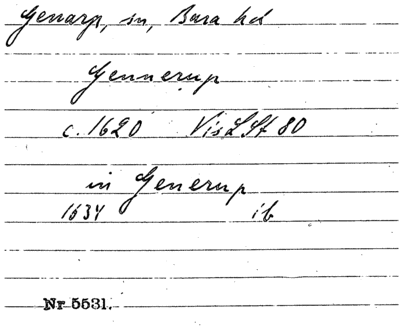 Genarp, sn, Bara hd
Gennerup
c. 1620 VisLSt 80
in Generup
1634 ib
Nr 5531.